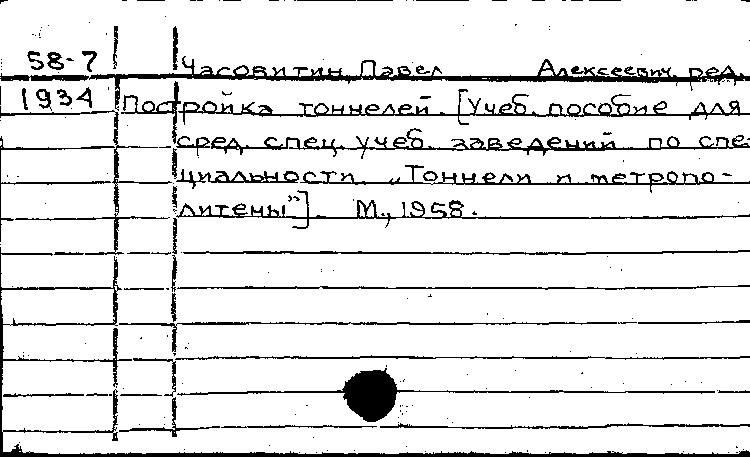 58-7 Часовитин, Павел Алексеевич, ред.
1934 Постройка тоннелей. [Учеб. пособие для
сред. спец. учеб. заведений по спе-
циальности „Тоннели и метропо-
литены"]. М., 1958.